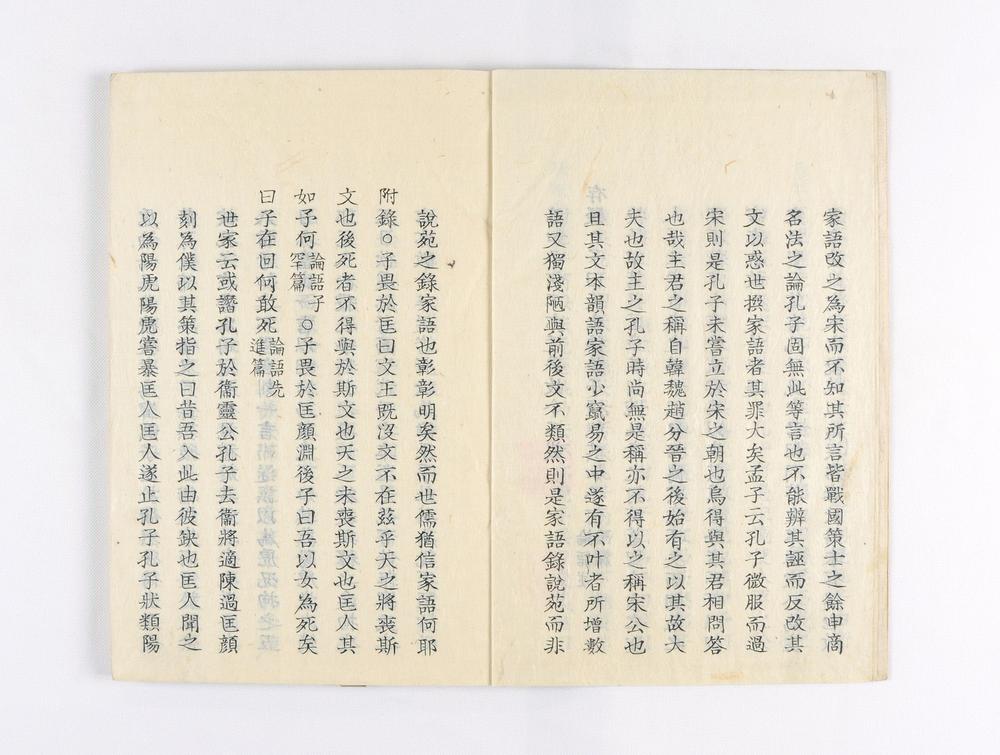 家語改之為宋而不知其所言皆戰國策士之餘申商
名法之論孔子固無此等言也不能辨其誣而反改其
文以惑世撰家語者其罪大矣孟子云孔子微服而過
宋則是孔子未嘗立於宋之朝也烏得與其君相問答
也哉主君之稱自韓魏趙分晉之後始有之以其故大
夫也故主之孔子時尚無是稱亦不得以之稱宋公也
且其文本韻語家語少竄易之中遂有不叶者所增數
語又獨淺陋與前後文不類然則是家語錄說苑而非
說苑之錄家語也彰彰明矣然而世儒猶信家語何耶
附錄○子畏於匡曰文王既沒文不在茲乎天之將喪斯
文也後死者不得與於斯文也天之未喪斯文也匡人其
如予何論語子罕篇○子畏於匡顏淵後子曰吾以女為死矣
曰子在回何敢死論語先進篇
世家云或譖孔子於衞靈公孔子去衞將適陳過匡顏
刻為僕以其策指之曰昔吾入此由彼缺也匡人聞之
以為陽虎陽虎嘗暴匡人匡人遂止孔子孔子狀類陽